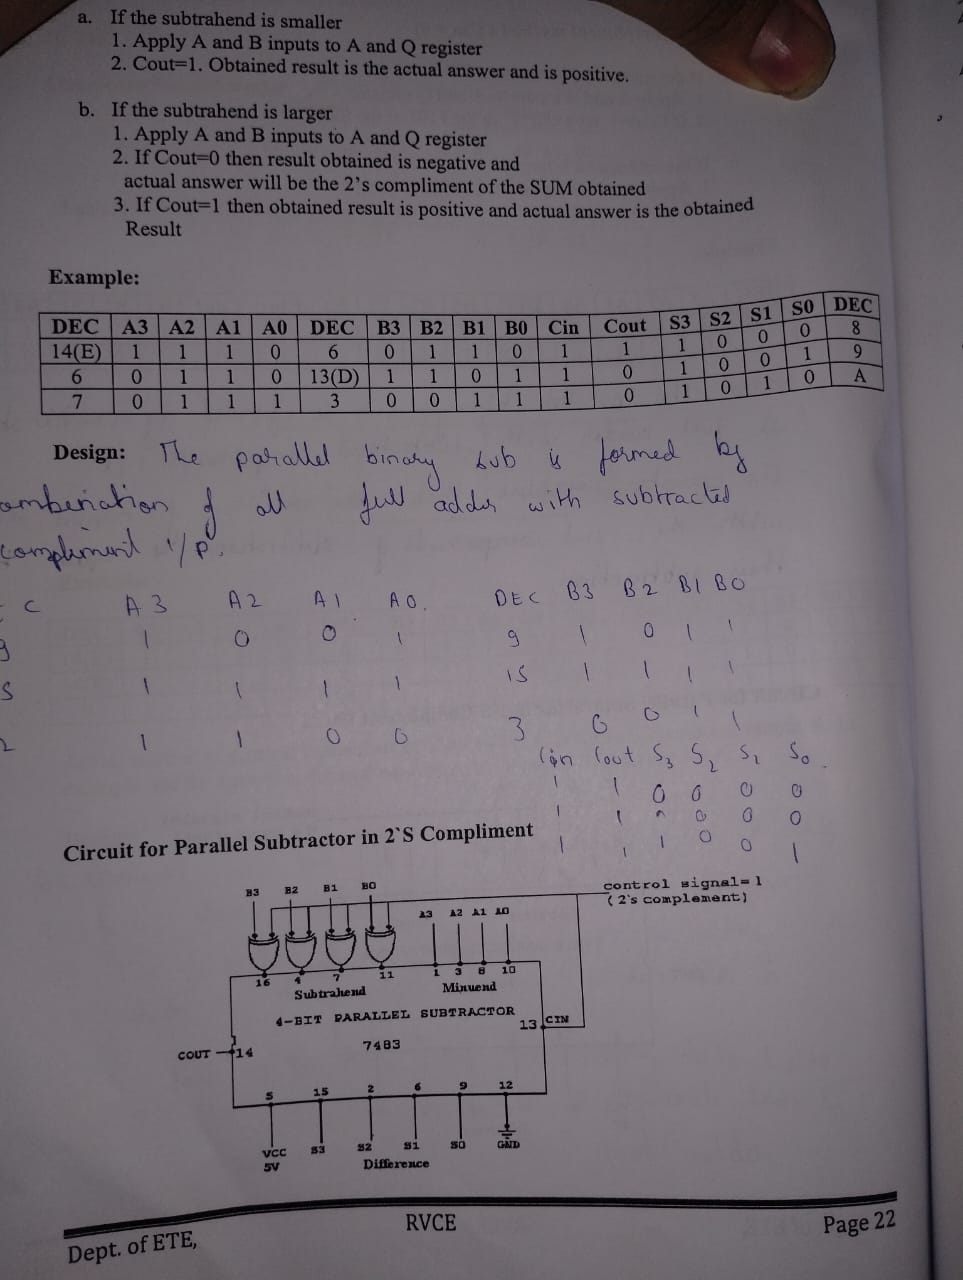 a. If the subtrahend is smaller
1. Apply A and B inputs to A and Q register
2. Cout=1. Obtained result is the actual answer and is positive.
b. If the subtrahend is larger
1. Apply A and B inputs to A and Q register
2. If Cout=0 then result obtained is negative and
actual answer will be the 2's compliment of the SUM obtained
3. If Cout=1 then obtained result is positive and actual answer is the obtained
Result
Example:
DEC A3 A2 A1 A0 DEC B3 B2 B1 B0 Cin Cout S3 S2 S1 S0 DEC
14(E) 1 1 1 0 6 0 1 1 0 1 1 1 0 0 0 8
6 0 1 1 0 13(D) 1 1 0 1 1 0 1 0 0 1 9
7 0 1 1 1 3 0 0 1 1 1 0 1 0 1 0 A
Design: The parallel binary sub is formed by
ombination of all full adder with subtracted
compliment i/p.
C A3 A2 A1 A0. DEC B3 B2 B1 B0
9 1 0 0 1 9 1 0 1 1
5 1 1 1 1 15 1 1 1 1
2 1 1 0 0 3 0 0 1 1
Cin Cout S3 S2 S1 S0.
1 1 0 0 0 0
1 1 0 0 0
1 1 1 0 0 1
Circuit for Parallel Subtractor in 2`S Compliment
control signal=1
(2's complement)
B3 B2 B1 B0
A3 A2 A1 A0
16 4 7 11 1 3 8 10
Subtrahend Minuend
4-BIT PARALLEL SUBTRACTOR
13 CIN
7483
COUT 14
5 15 2 6 9 12
VCC S3 S2 S1 S0 GND
5V Difference
Dept. of ETE, RVCE Page 22